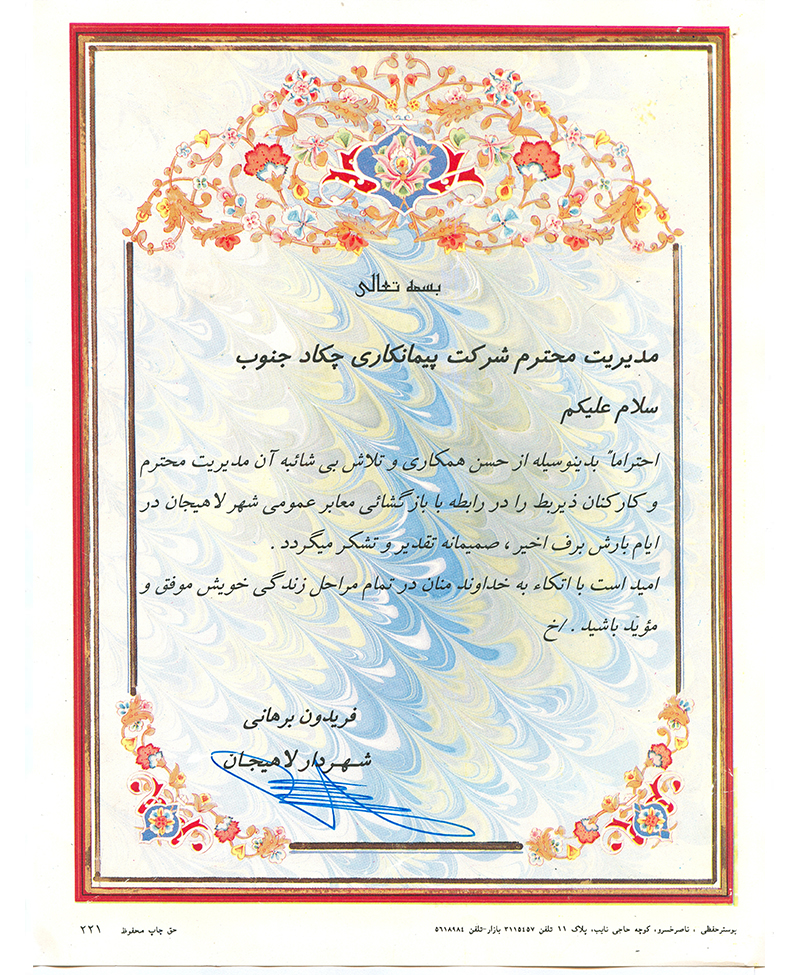 بسمه تعالی
مدیریت محترم شرکت پیمانکاری چکاد جنوب
سلام علیکم
احتراماً بدینوسیله از حسن همکاری و تلاش بی شائبه آن مدیریت محترم
و کارکنان ذیربط را در رابطه با بازگشائی معابر عمومی شهر لاهیجان در
ایام بارش برف اخیر ، صمیمانه تقدیر و تشکر میگردد .
امید است با اتکاء به خداوند منان در تمام مراحل زندگی خویش موفق و
مؤید باشید . /خ
فریدون برهانی
شهردار لاهیجان
پوسترحفظی ، ناصرخسرو، کوچه حاجی نایب، پلاک ۱۱ تلفن ۳۱۱۵۴۵۷ بازار-تلفن ۵۶۱۸۹۸۴ حق چاپ محفوظ ۲۲۱